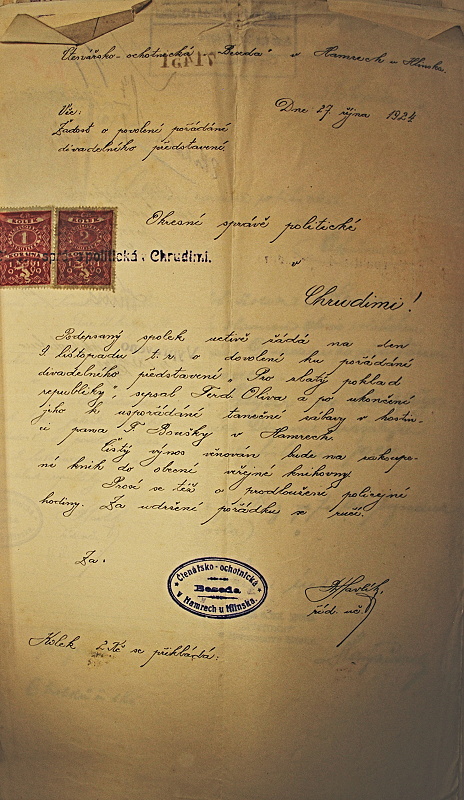 Čtenářsko-ochotnická "Beseda" v Hamrech u Hlinska.
Dne 27. října 1924
Věc:
Žádost o povolení pořádání
divadelního představení
Okresní správě politické
v
Chrudimi!
KOLEK KOLEK
1
správa politická v Chrudimi.
Podepsaný spolek uctivě žádá na den
9. listopadu t. r. o dovolení ku pořádání
divadelního představení „Pro zlatý poklad
republiky", sepsal Ferd. Oliva a po ukončení
jeho k uspořádání taneční zábavy v hostin-
ci pana F. Boušky v Hamrech.
Čistý výnos věnován bude na zakoupe-
ní knih do obecné veřejné knihovny.
Prosí se též o prodloužení policejní
hodiny. Za udržení pořádku se ručí.
Za:
Čtenářsko-ochotnická
Beseda
v Hamrech u Hlinska.
Havlík,
říd. uč.
Kolek 2 Kč se překládá: